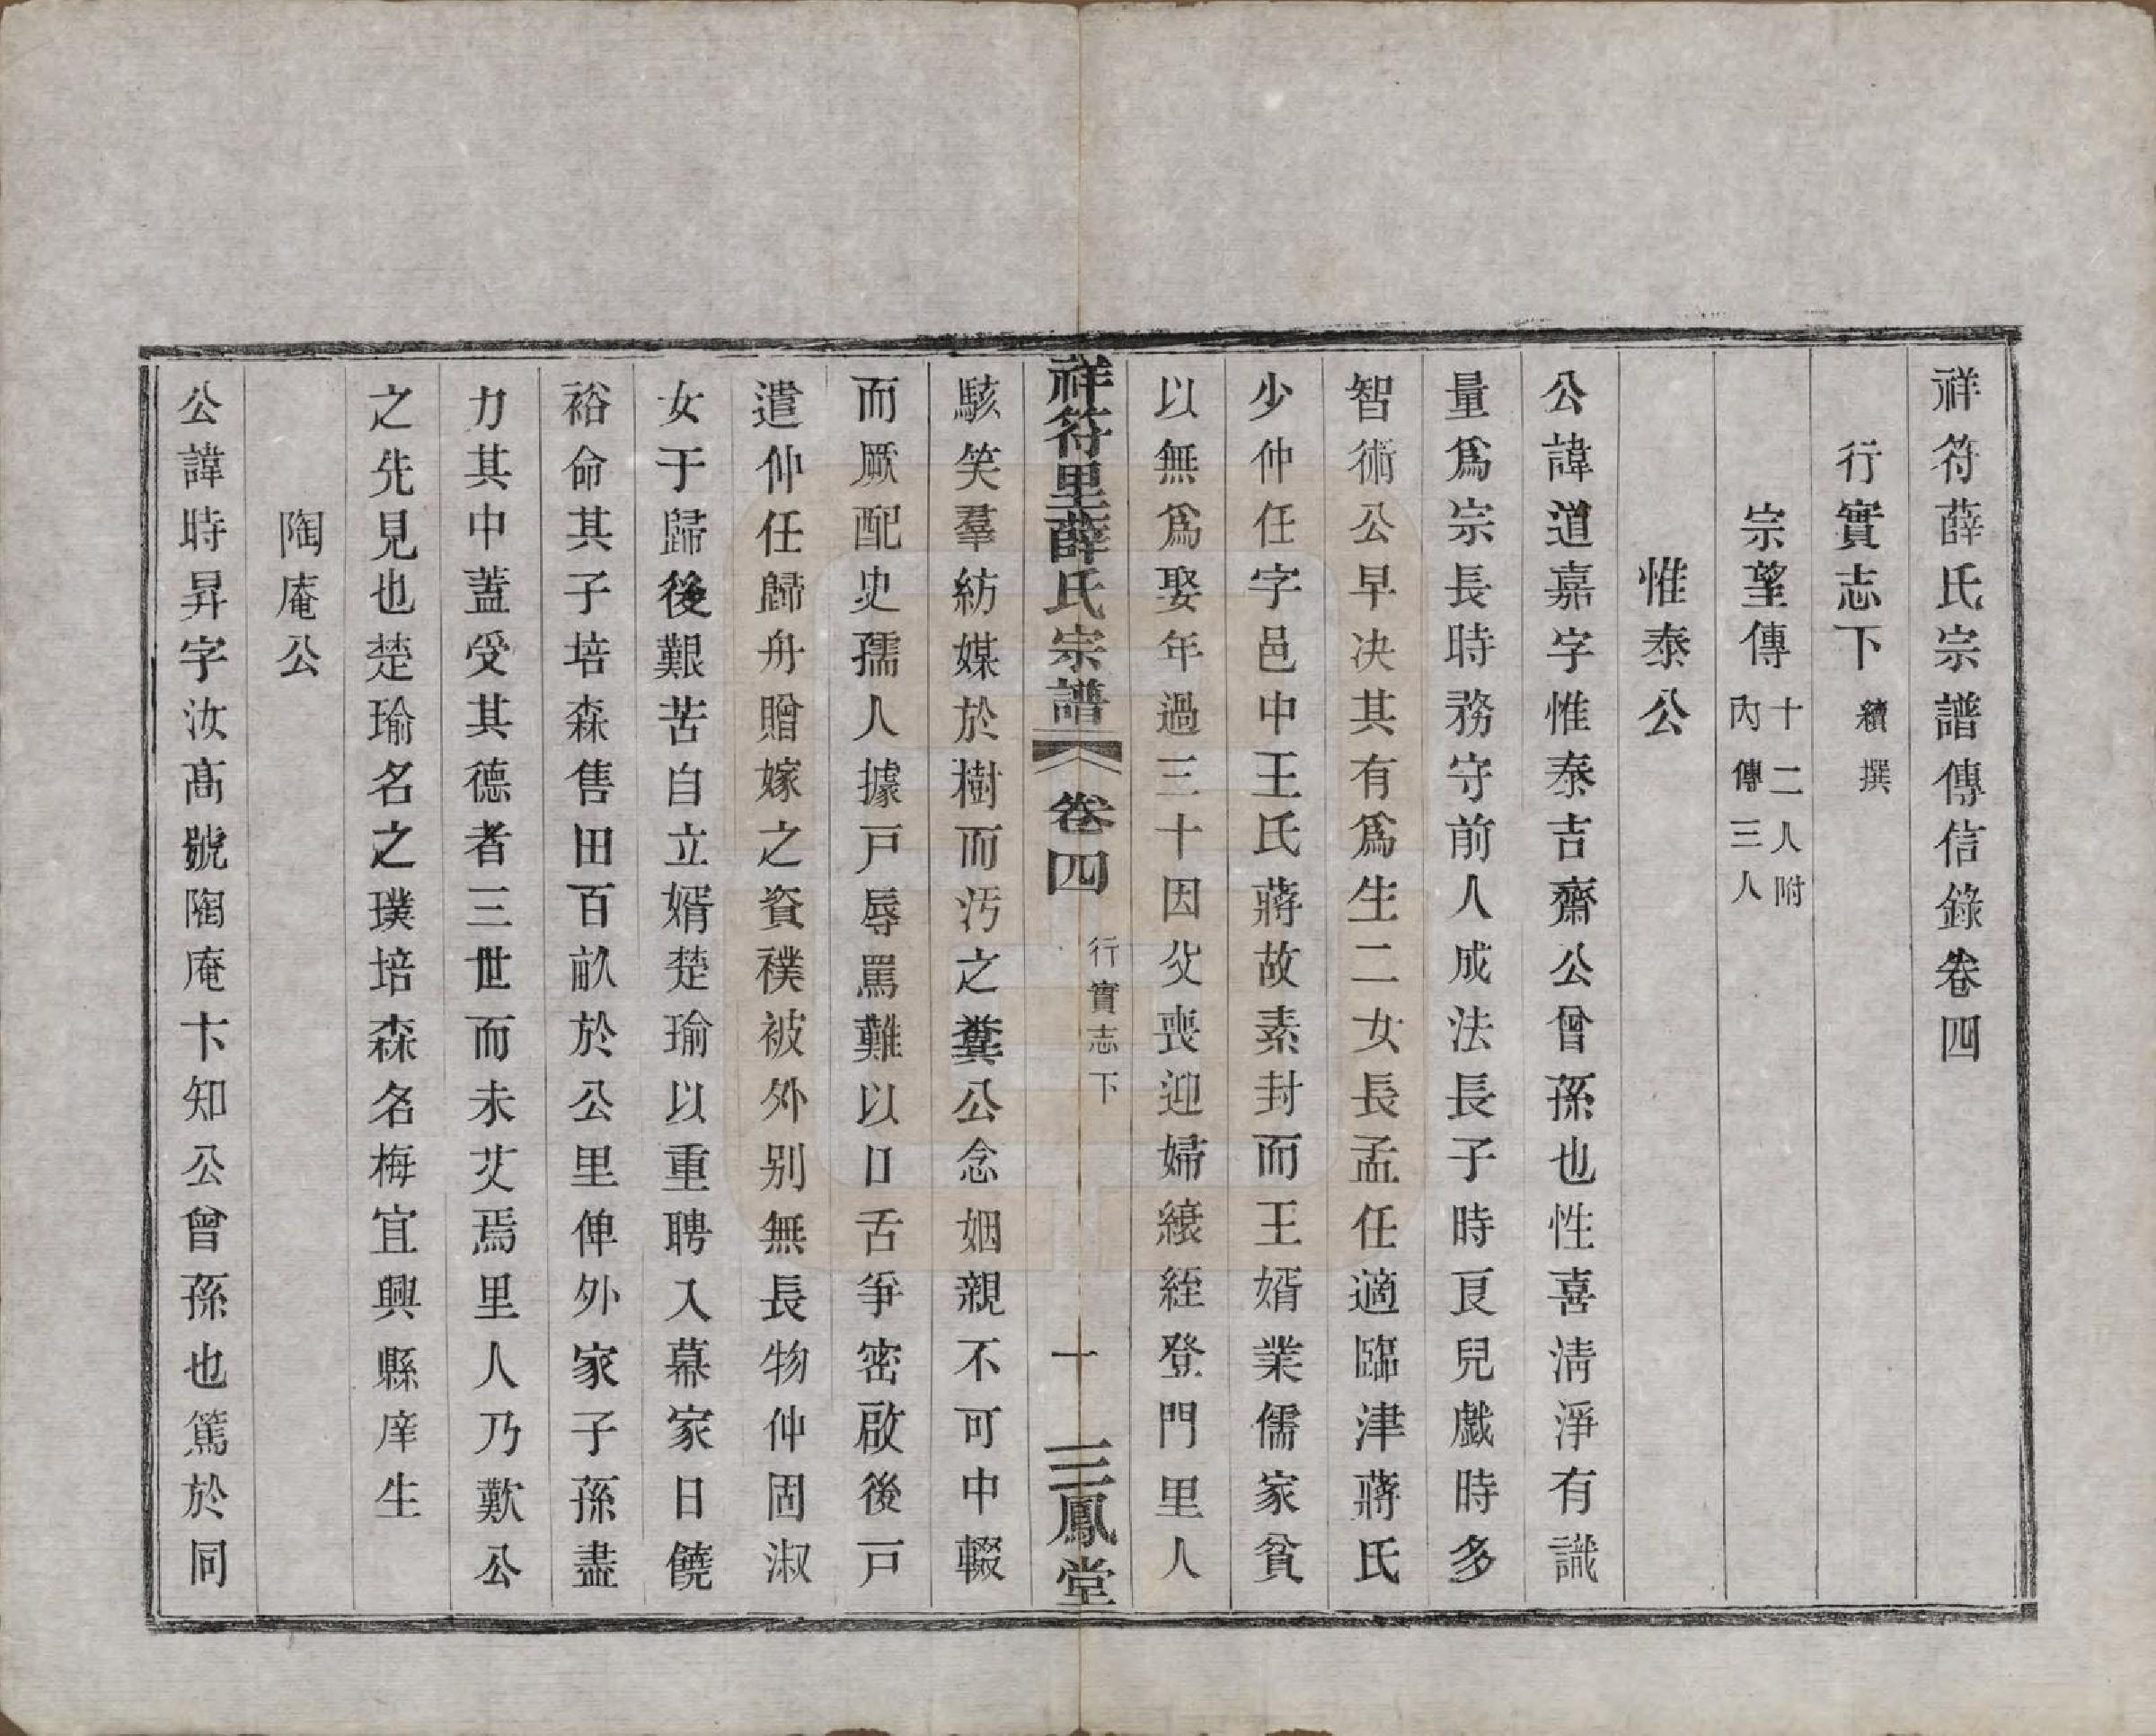 祥符薛氏宗譜傳信錄卷四
行實志下 續撰
宗望傳 十二人附
內傳三人
惟泰公
公諱道嘉字惟泰吉齋公曾孫也性喜淸淨有識
量爲宗長時務守前人成法長子時良兒戲時多
智術公早决其有爲生二女長孟任適臨津蔣氏
少仲任字邑中王氏蔣故素封而王婿業儒家貧
以無爲娶年過三十因父喪迎婦縗絰登門里人
祥符里薛氏宗譜 卷四 行實志下 一 三鳳堂
駭笑羣紡媒於樹而汚之糞公念姻親不可中輟
而厥配史孺人據戸辱罵難以口舌爭密啟後戸
遣仲任歸舟贈嫁之資襆被外别無長物仲固淑
女于歸後艱苦自立婿楚瑜以重聘入幕家日饒
裕命其子培森售田百畝於公里俾外家子孫盡
力其中蓋受其德者三世而未艾焉里人乃歎公
之先見也楚瑜名之璞培森名梅宜興縣庠生
陶庵公
公諱時昇字汝髙號陶庵卞知公曾孫也篤於同